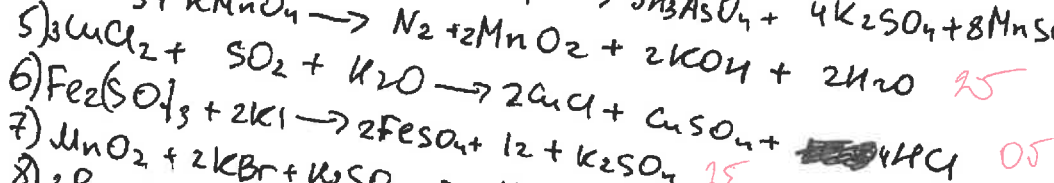 KMnO4 → N2 + 2MnO2 + 2KOH + 2H2O 2б
4K2SO4 + 8MnS
5) 3CuCl2 + SO2 + H2O → 2CuCl + CuSO4 + 4HCl 0б
6) Fe2(SO4)3 + 2KI → 2FeSO4 + I2 + K2SO4 2б
7) MnO2 + 2KBr +
8)